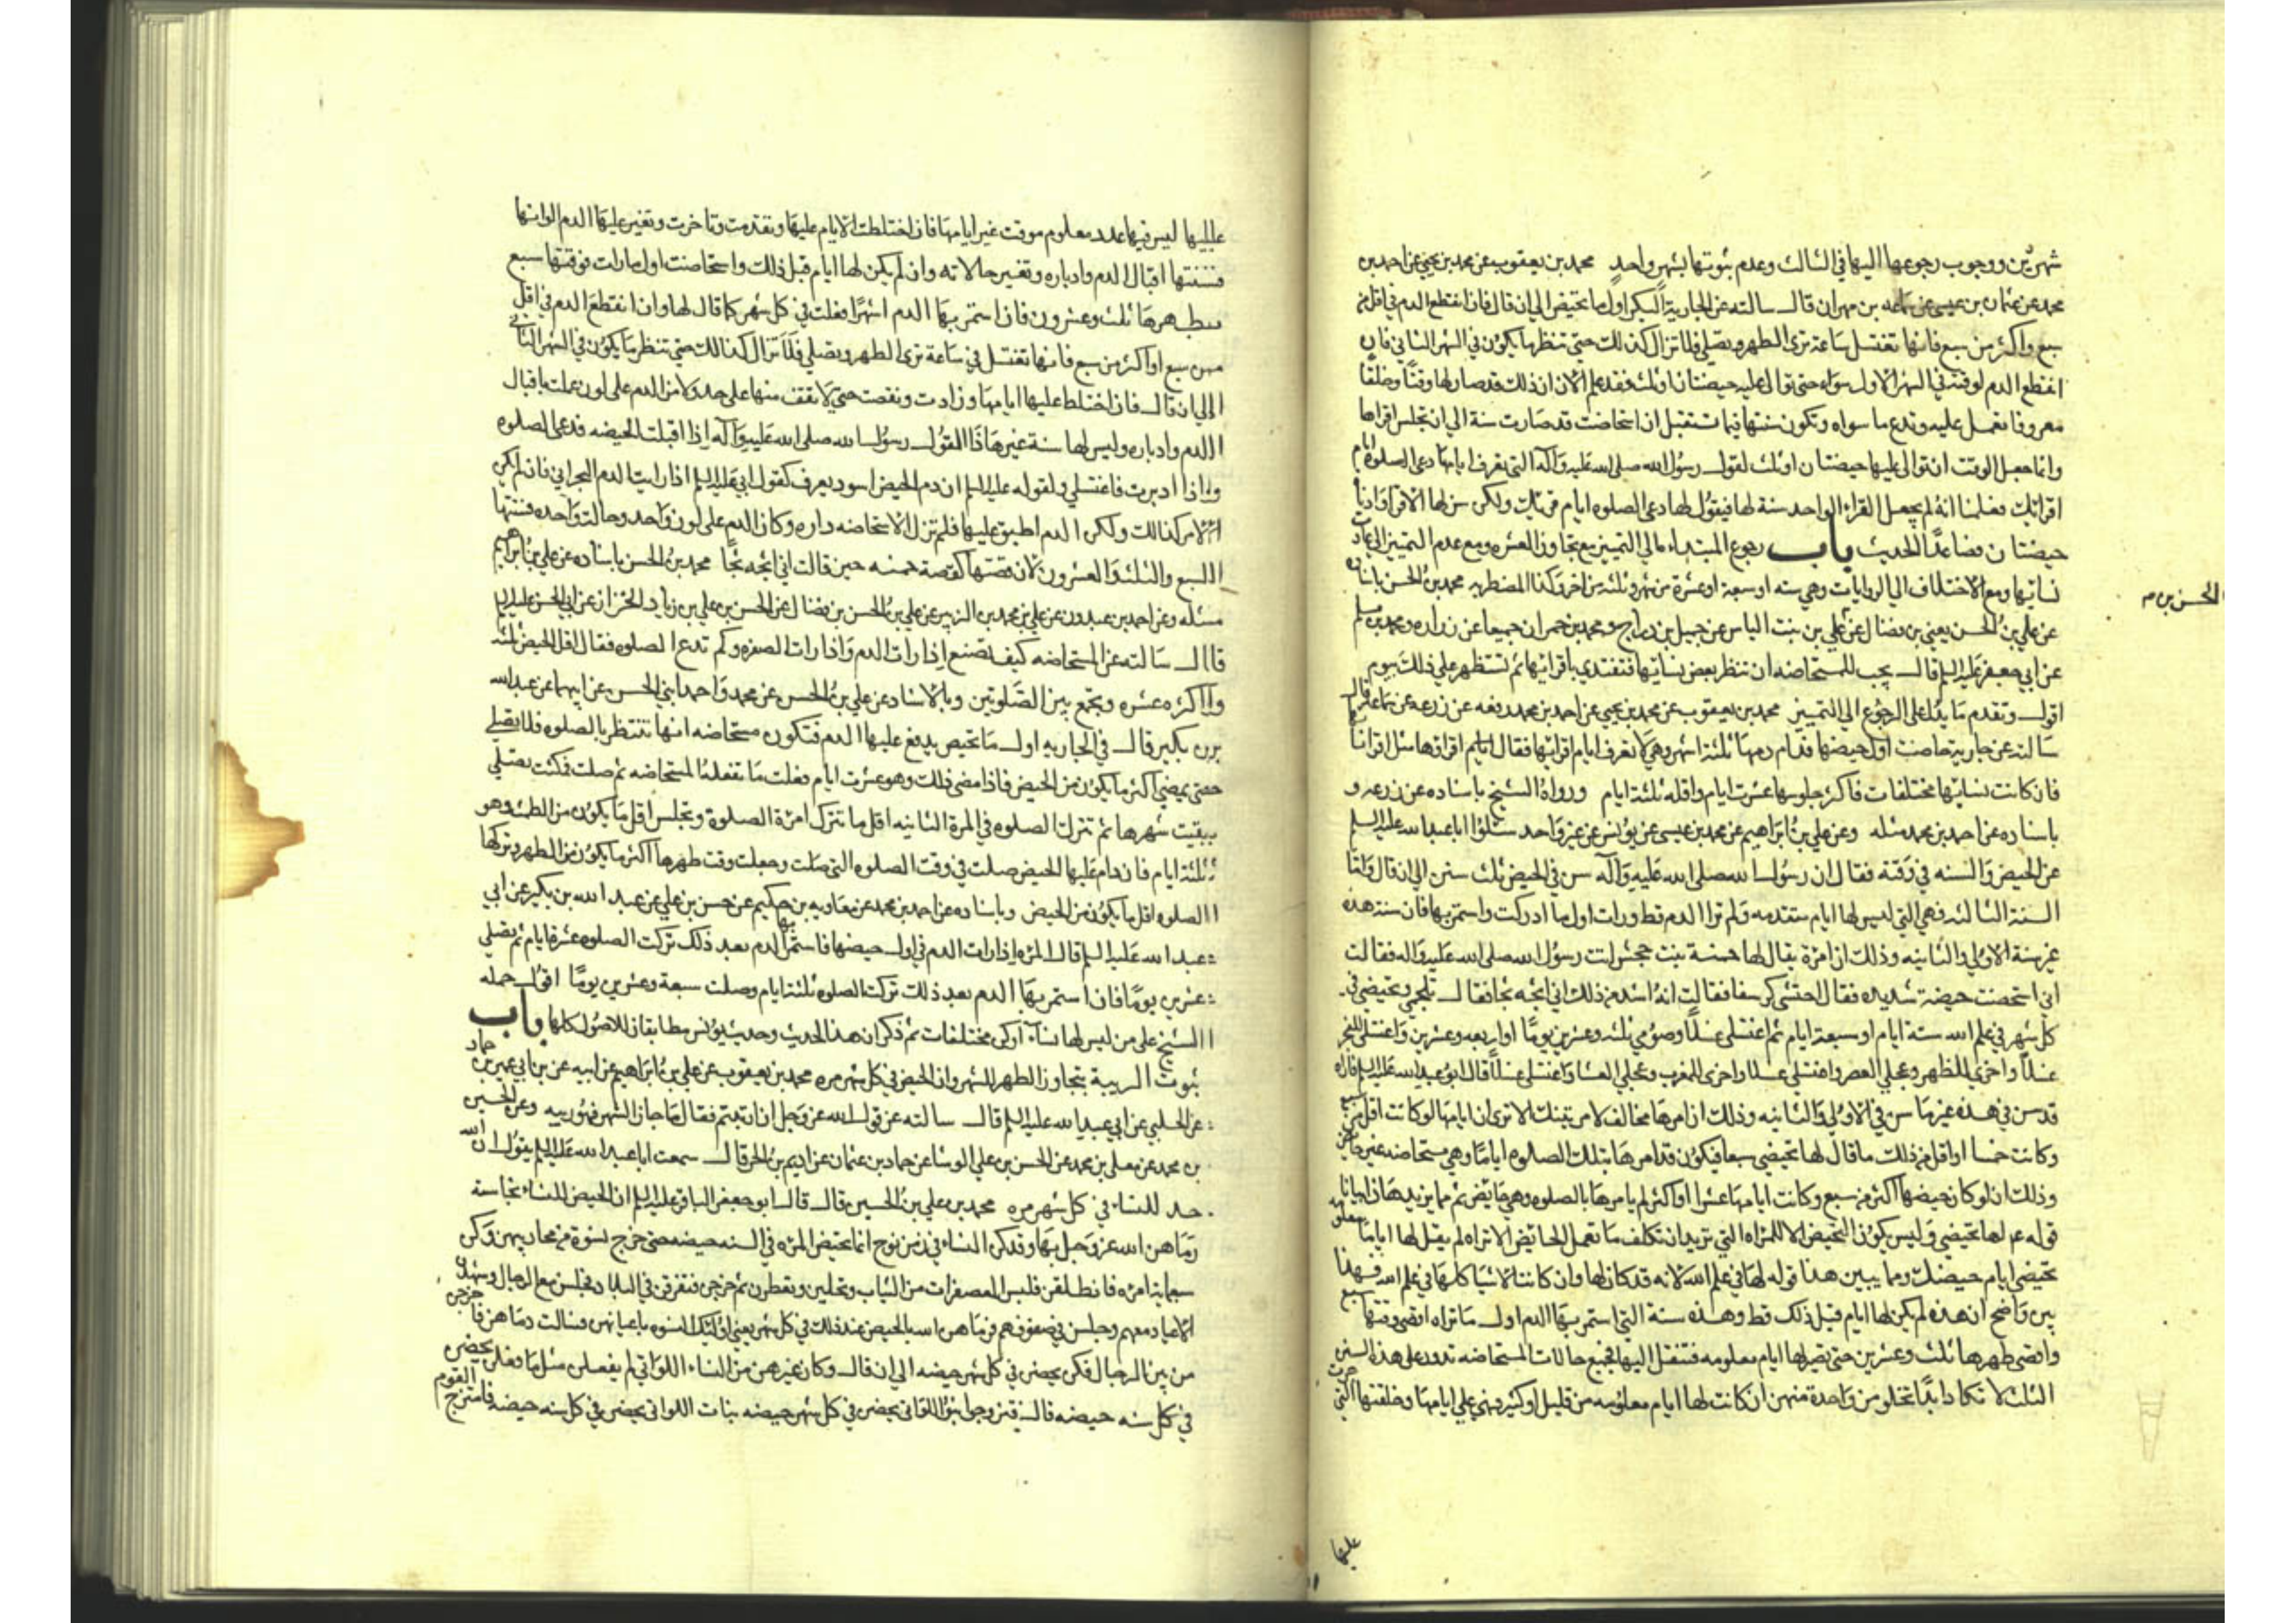 شهرين ووجوب رجوعها اليها في الثالث وعدم ثبوتها بشهر واحد محمد بن يعقوب عن محمد بن يحيى عن احمد بن
محمد عن عثمان بن عيسى عن سماعه بن مهران قال سالته عن الجارية البكر اول ما تحيض الى ان قال فان انقطع الدم في اقل من
سبع واكثر من سبع فانها تغتسل ساعة ترى الطهر وتصلي فلا تزال كذلك حتى تنظر ما يكون في الشهر الثاني فان
انقطع الدم لوقته في الشهر الاول سواء حتى توالى عليه حيضتان او ثلث فقد علم الآن ان ذلك قد صار لها وقتا وخلقا
معروفا تعمل عليه وتدع ما سواه وتكون سنتها فيما تستقبل ان استحاضت قد صارت سنة الى ان تجلس اقراءها
وانما جعل الوقت ان توالى عليها حيضتان او ثلث لقول رسول الله صلى الله عليه وآله التي تعرف ايامها دعي الصلوة ايام
اقرائك فعلمنا انه لم يجعل القراء الواحد سنة لها فيقول لها دعي الصلوه ايام قرئك ولكن سن لها الاقراء وادناه
حيضتان فصاعدا الحديث باب رجوع المبتداءه الى التمييز مع تجاوز العشره ومع عدم التمييز الى عادة
نسائها ومع الاختلاف الى الروايات وهي سته او سبعة او عشرة من شهر وثلثة من اخر وكذا المضطربه محمد بن الحسن باسناده
الحسن بن م
عن علي بن الحسن يعني بن فضال عن علي بن بنت الياس عن جميل بن دراج ومحمد بن حمران جميعا عن زراره ومحمد بن مسلم
عن ابي جعفر عليه السلم قال يجب للمستحاضه ان تنظر بعض نسائها فتقتدي باقرائها ثم تستظهر على ذلك بيوم
اقول وتقدم ما يدل على الرجوع الى التمييز محمد بن يعقوب عن محمد بن يحيى عن احمد بن محمد رفعه عن زرعه عن سماعة قال
سالته عن جارية حاضت اول حيضها فدام دمها ثلثة اشهر وهي لا تعرف ايام اقرائها فقال اقراؤها مثل اقراء نسائها
فان كانت نسائها مختلفات فاكثر جلوسها عشرة ايام واقله ثلثة ايام ورواه الشيخ باسناده عن زرعه و
باسناده عن احمد بن محمد مثله وعن علي بن ابراهيم عن محمد بن عيسى عن يونس عن غير واحد سئلوا ابا عبد الله عليه السلم
عن الحيض والسنه في وقته فقال ان رسول الله صلى الله عليه وآله سن في الحيض ثلث سنن الى ان قال واما
السنة الثالثه فهي التي ليس لها ايام متقدمه ولم تر الدم قط ورات اول ما ادركت واستمر بها فان سنة هذه
غير سنة الاولى والثانيه وذلك ان امرة يقال لها حمنة بنت جحش اتت رسول الله صلى الله عليه واله فقالت
اني استحضت حيضة شديده فقال احتشى كرسفا فقالت انه اشد من ذلك اني اثجه ثجا فقال تلجمي وتحيضي في
كل شهر في علم الله ستة ايام او سبعة ايام ثم اغتسلي غسلا وصومي ثلثه وعشرين يوما او اربعه وعشرين واغتسلي للفجر
غسلا واخري الظهر وعجلي العصر واغتسلي غسلا واخرى المغرب وعجلي العشا واغتسلي غسلا قال ابو عبد الله عليه السلم فاراه
قد سن في هذه غير ما سن في الاولى والثانيه وذلك ان امرها مخالف لامر تينك الا ترى ان ايامها لو كانت اقل من سبع
وكانت خمسا او اقل من ذلك ما قال لها تحيضي سبعا فيكون قد امرها بتلك الصلوه اياما وهي مستحاضه غير حائض
وذلك ان لو كان حيضها اكثر من سبع وكانت ايامها عشرا او اكثر لم يامرها بالصلوه وهي حائض ثم مما يزيد هذا بيانا
قوله ع لها تحيضي وليس يكون التحيض الا للمراه التي تريد ان تكلف ما تعمل الحائض الا تراه لم يقل لها اياما معلومه
تحيضي ايام حيضك ومما يبين هذا قوله لها في علم الله لانه قد كان لها وان كانت الاشيا كلها في علم الله فهذا
بين واضح ان هذه لم يكن لها ايام قبل ذلك قط وهذه سنة التي استمر بها الدم اول ما تراه اقصى وقتها سبع
واقصى طهرها ثلث وعشرين حتى تصير لها ايام معلومه فتنتقل اليها فجميع حالات المستحاضه تدور على هذه السنن
الثلث لا تكاد ابدا تخلو من واحدة منهن ان كانت لها ايام معلومه من قليل او كثير فهي على ايامها وخلقتها التي جرت
عليها
عليها ليس فيها عدد معلوم موقت غير ايامها فان اختلطت الايام عليها وتقدمت وتاخرت وتغير عليها الدم الوانها
فسنتها اقبال الدم وادباره وتغير حالاته وان لم يكن لها ايام قبل ذلك واستحاضت اول ما رات فوقتها سبع
وطهرها ثلث وعشرون فان استمر بها الدم اشهرا فعلت في كل شهر كما قال لها وان انقطع الدم في اقل
من سبع او اكثر من سبع فانها تغتسل في ساعة ترى الطهر وتصلي فلا تزال كذالك حتى تنظر ما يكون في الشهر الثاني
الى ان قال فان اختلط عليها ايامها وزادت ونقصت حتى لا تقف منها على حد ولا من الدم على لون عملت باقبال
الدم وادباره وليس لها سنة غير هذا القول رسول الله صلى الله عليه وآله اذا اقبلت الحيضه فدعي الصلوه
واذا ادبرت فاغتسلي ولقوله عليه السلم ان دم الحيض اسود يعرف كقول ابي عليه السلم اذا رايت الدم البحراني فان لم يكن
الامر كذالك ولكن الدم اطبق عليها فلم تزل الاستحاضه داره وكان الدم على لون واحد وحالت واحده فسنتها
السبع والثلث والعشرون لان قصتها كقصة حمنه حين قالت اني اثجه ثجا محمد بن الحسن باسناده عن علي بن ابراهيم
مثله وعن احمد بن عبدون عن علي بن محمد بن الزبير عن علي بن الحسن بن فضال عن الحسن بن علي بن زياد الخزاز عن ابي الحسن عليه السلم
قال سالته عن المستحاضه كيف تصنع اذا رات الدم واذا رات الصفره وكم تدع الصلوه فقال اقل الحيض ثلثه
واكثره عشره وتجمع بين الصلوتين وبالاسناد عن علي بن الحسن عن محمد واحمد ابني الحسن عن ابيهما عن عبد الله
بن بكير قال في الجاريه اول ما تحيض يدفع عليها الدم فتكون مستحاضه انها تنتظر بالصلوه فلا تصلي
حتى يمضي اكثر ما يكون من الحيض فاذا مضى ذلك وهو عشرة ايام فعلت ما تفعله المستحاضه ثم صلت فمكثت تصلي
بقيت شهرها ثم تترك الصلوه في المرة الثانيه اقل ما تترك امرة الصلوة وتجلس اقل ما يكون من الطمث وهو
ثلثة ايام فان دام عليها الحيض صلت في وقت الصلوه التي صلت وجعلت وقت طهرها اكثر ما يكون من الطهر وتركها
الصلوه اقل ما يكون من الحيض وباسناده عن احمد بن محمد عن معاويه بن حكيم عن حسن بن علي عن عبد الله بن بكير عن ابي
عبد الله عليه السلم قال المراه اذا رات الدم في اول حيضها فاستمر بها الدم بعد ذلك تركت الصلوه عشرة ايام ثم تصلي
عشرين يوما فان استمر بها الدم بعد ذلك تركت الصلوه ثلثة ايام وصلت سبعة وعشرين يوما اقول حمله
الشيخ على من ليس لها نساء او كن مختلفات ثم ذكر ان هذا الحديث وحديث يونس مطابقان للاصول كلها باب
ثبوت الريبة بتجاوز الطهر الشهر وان الحيض في كل شهر مره محمد بن يعقوب عن علي بن ابراهيم عن ابيه عن بن ابي عمير عن حماد
عن الحلبي عن ابي عبد الله عليه السلم قال سالته عن قول الله عز وجل ان ارتبتم فقال ما جاز الشهر فهو ريبه وعن الحسين
بن محمد عن معلى بن محمد عن الحسن بن علي الوشا عن حماد بن عثمان عن اديم بن الحر قال سمعت ابا عبد الله عليه السلم يقول ان الله
حد للنساء في كل شهر مره محمد بن علي بن الحسين قال قال ابو جعفر الباقر عليه السلم ان الحيض للنساء نجاسة
رماهن الله عز وجل بها وقد كن النساء في زمن نوح انما تحيض المراه في السنه حيضه حتى خرج نسوة من محاريبهن وكن
سبعماية امره فانطلقن فلبسن المعصفرات من الثياب وتحلين وتعطرن ثم خرجن فتفرقن في البلاد فجلسن مع الرجال وشهدن
الاعياد معهم وجلسن في صفوفهم فرماهن الله بالحيض عند ذلك في كل شهر يعني اولئك النسوه باعيانهن فسالت دماهن فاخرجن
من بين الرجال فكن يحضن في كل شهر حيضه الى ان قال وكان غيرهن من النساء اللواتي لم يفعلن مثل ما فعلن يحضن
في كل سنه حيضه قال فتزوجوا بنو اللواتي يحضن في كل شهر حيضه بنات اللواتي يحضن في كل سنه حيضه فامتزج القوم